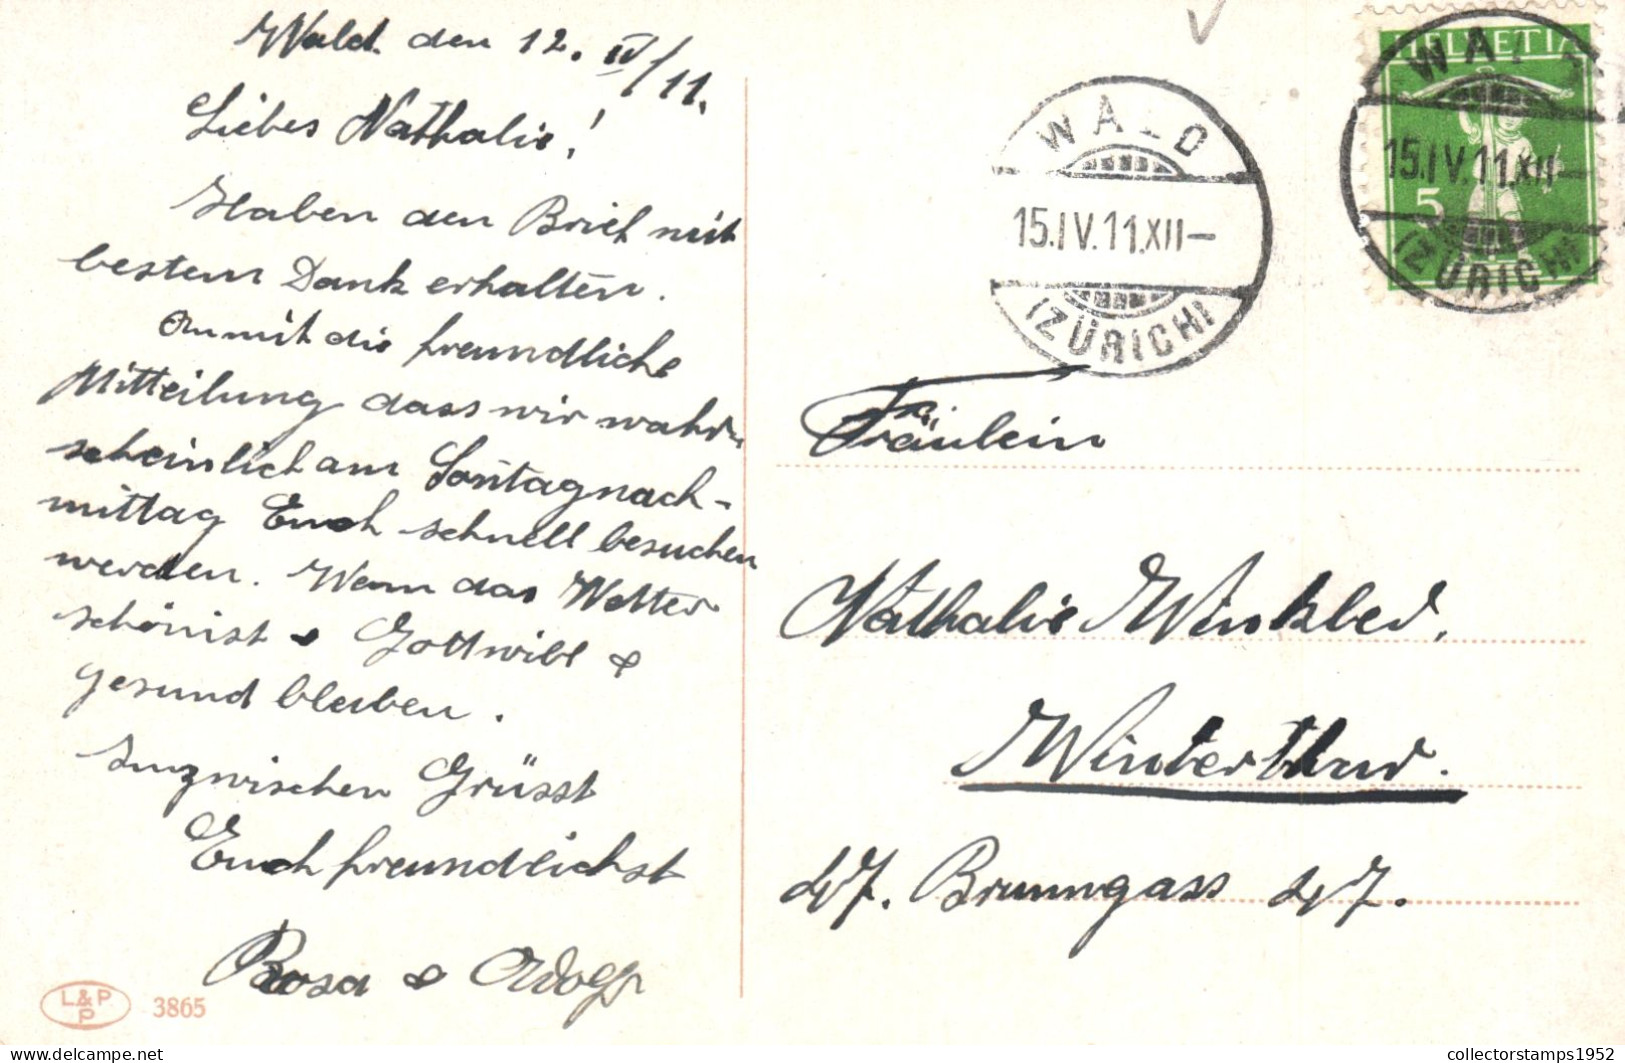 Wald den 12. IV/11.
Liebes Nathalie!
Haben den Brief mit
bestem Dank erhalten.
Anmit die freundliche
Mitteilung dass wir wahr-
scheinlich am Sontagnach-
mittag Euch schnell besuchen
werden. Wenn das Wetter
schön ist & Gott will &
gesund bleiben.
Inzwischen Grüsst
Euch freundlichst
Rosa & Adolf
L&P
P
3865
WALD
15.IV.11.XII–
(ZÜRICH)
HELVETIA
5
WALD
15.IV.11.XII–
(ZÜRICH)
Fräulein
Nathalie Winkler.
Winterthur.
47. Brunngass 47.
collectorstamps1952
delcampe.net